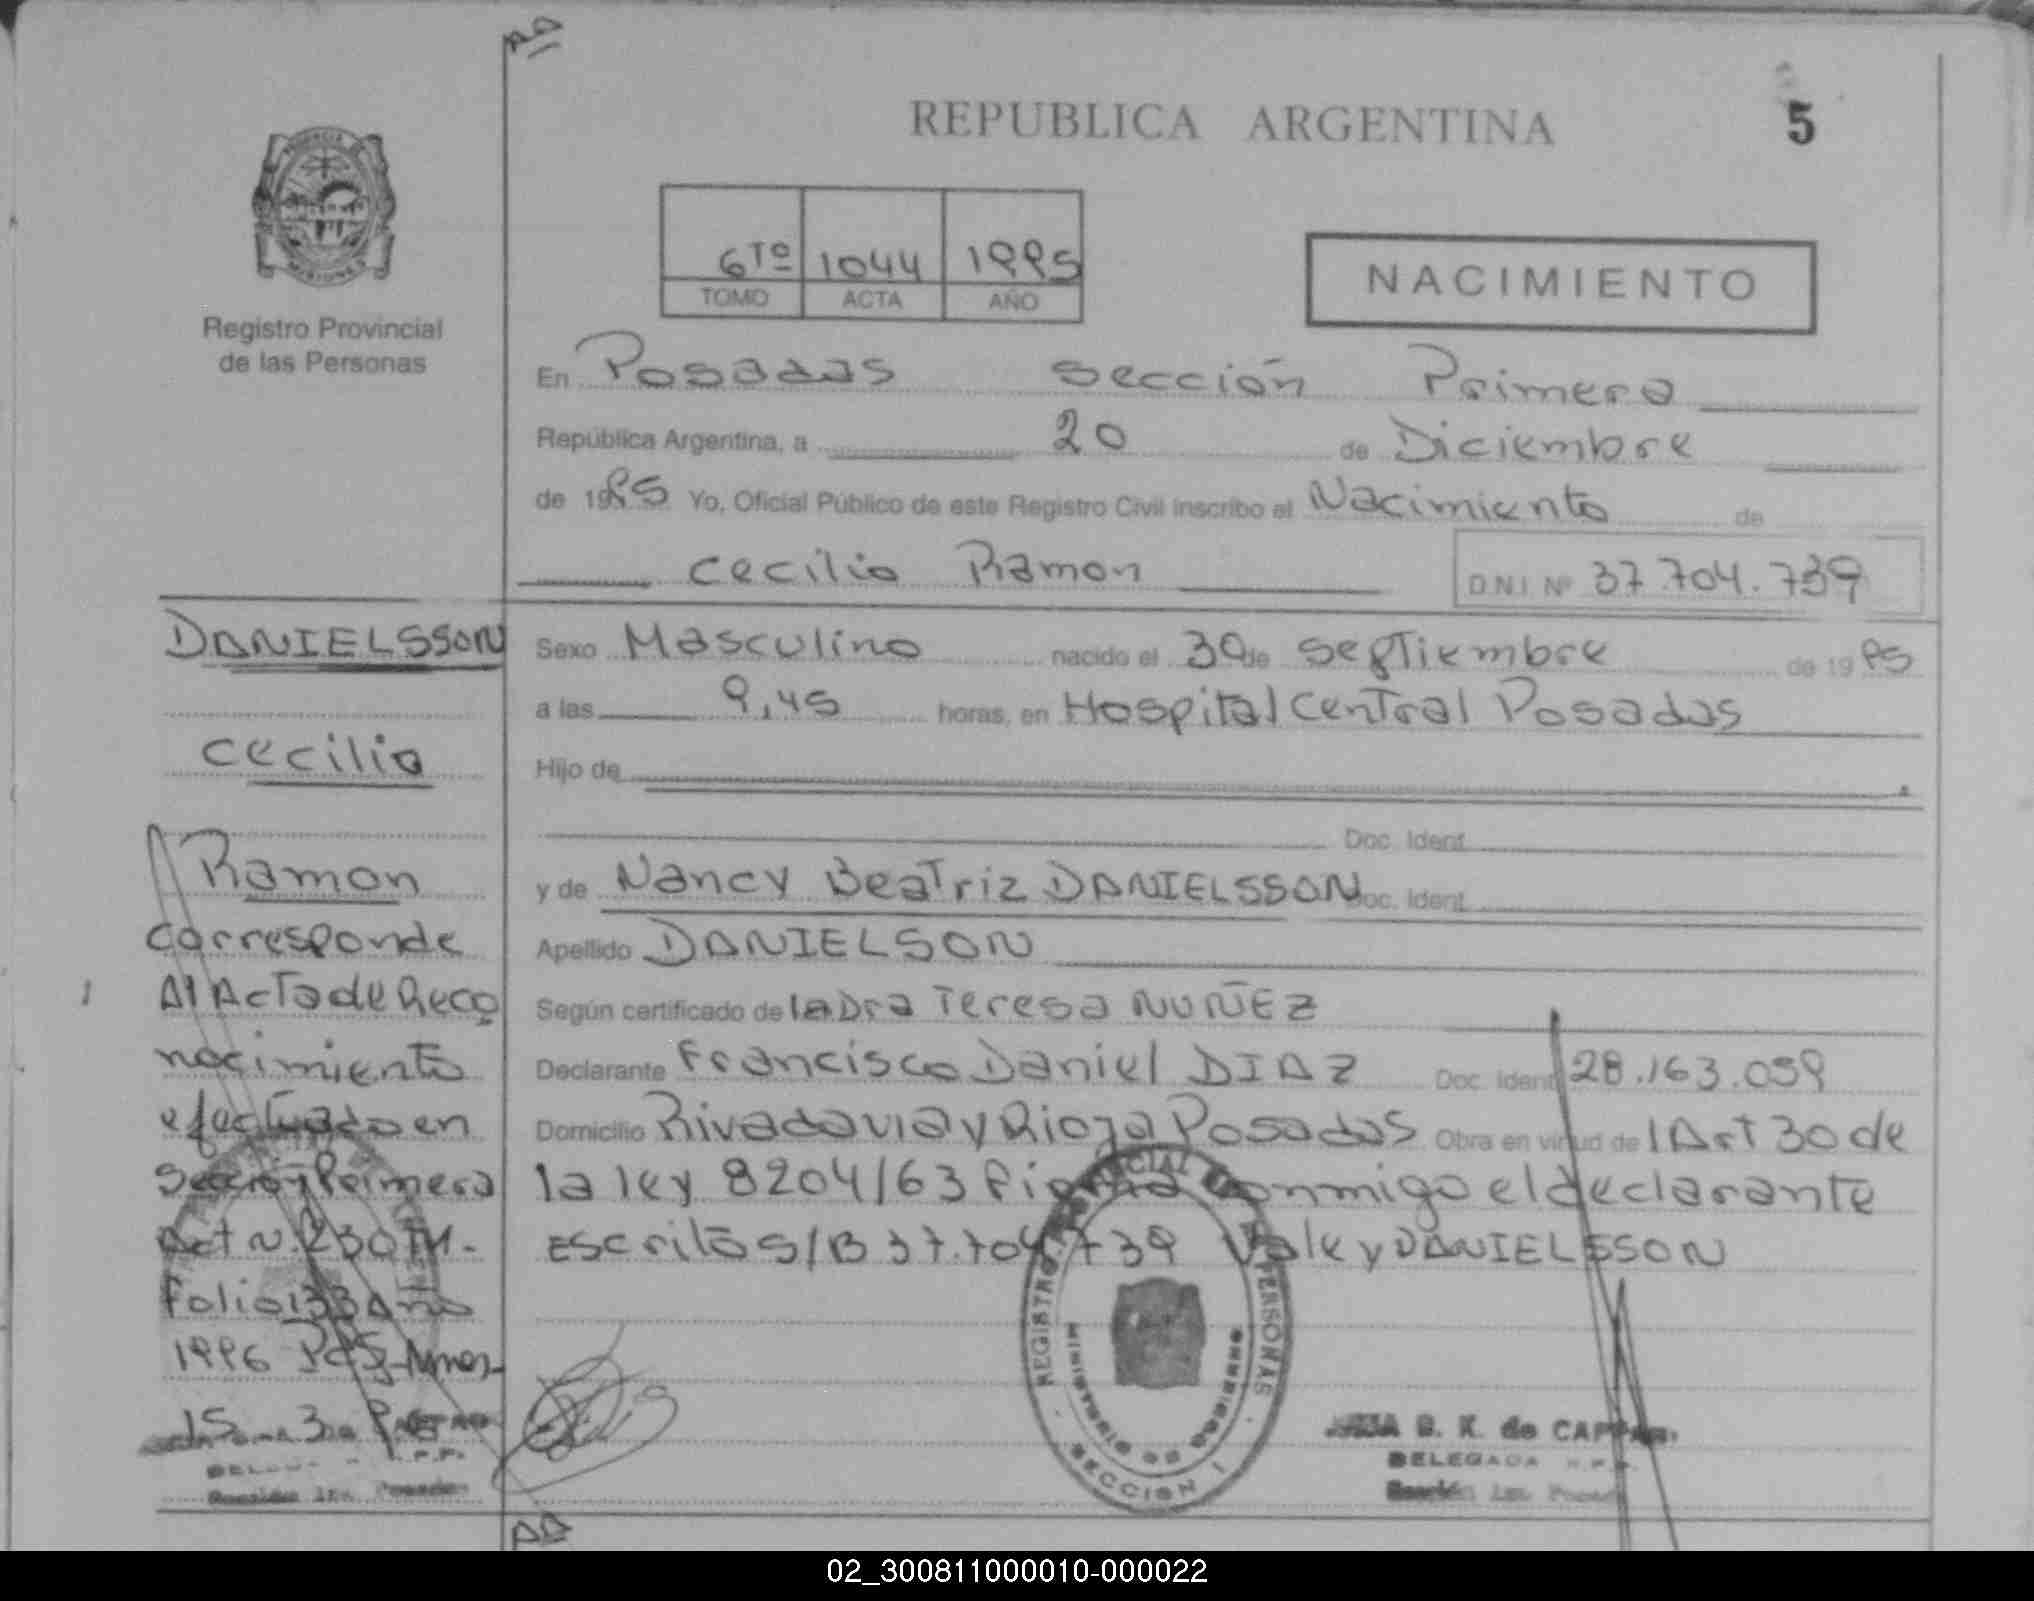 REPUBLICA ARGENTINA
5
PROVINCIA DE
MISIONES
Registro Provincial
de las Personas
6TO 1044 1995
TOMO ACTA AÑO
NACIMIENTO
En Posadas sección Primera
República Argentina, a 20 de Diciembre
de 1995 Yo, Oficial Público de este Registro Civil inscribo el Nacimiento de
cecilio Ramon D.N.I. Nº 37.704.739
Sexo Masculino nacido el 30 de septiembre de 1995
a las 9,45 horas, en Hospital Central Posadas
Hijo de
Doc. Ident.
y de Nancy Beatriz DANIELSSON Doc. Ident.
Apellido DANIELSON
Según certificado de la Dra Teresa NUÑEZ
Declarante Francisco Daniel DIAZ Doc. Ident. 28.163.059
Domicilio Rivadavia y Rioja Posadas Obra en virtud de l Art 30 de
la ley 8204/63 firma conmigo el declarante
Escritos/B 37.704.739 Vale y DANIELSSON
DANIELSSON
cecilio
Ramon
corresponde
Al Acta de Reco
nocimiento
efectuado en
Sección Primera
Act N. 230 T1-
Folio 133 Año
1996 Pos-Mnes-
REGISTRO PROVINCIAL PERSONAS
MINISTERIO DE GOBIERNO
SECCION I
B. K. de
DELEGADA
Sección 1ra. Posadas
Sección 1ra. Posadas
02_300811000010-000022